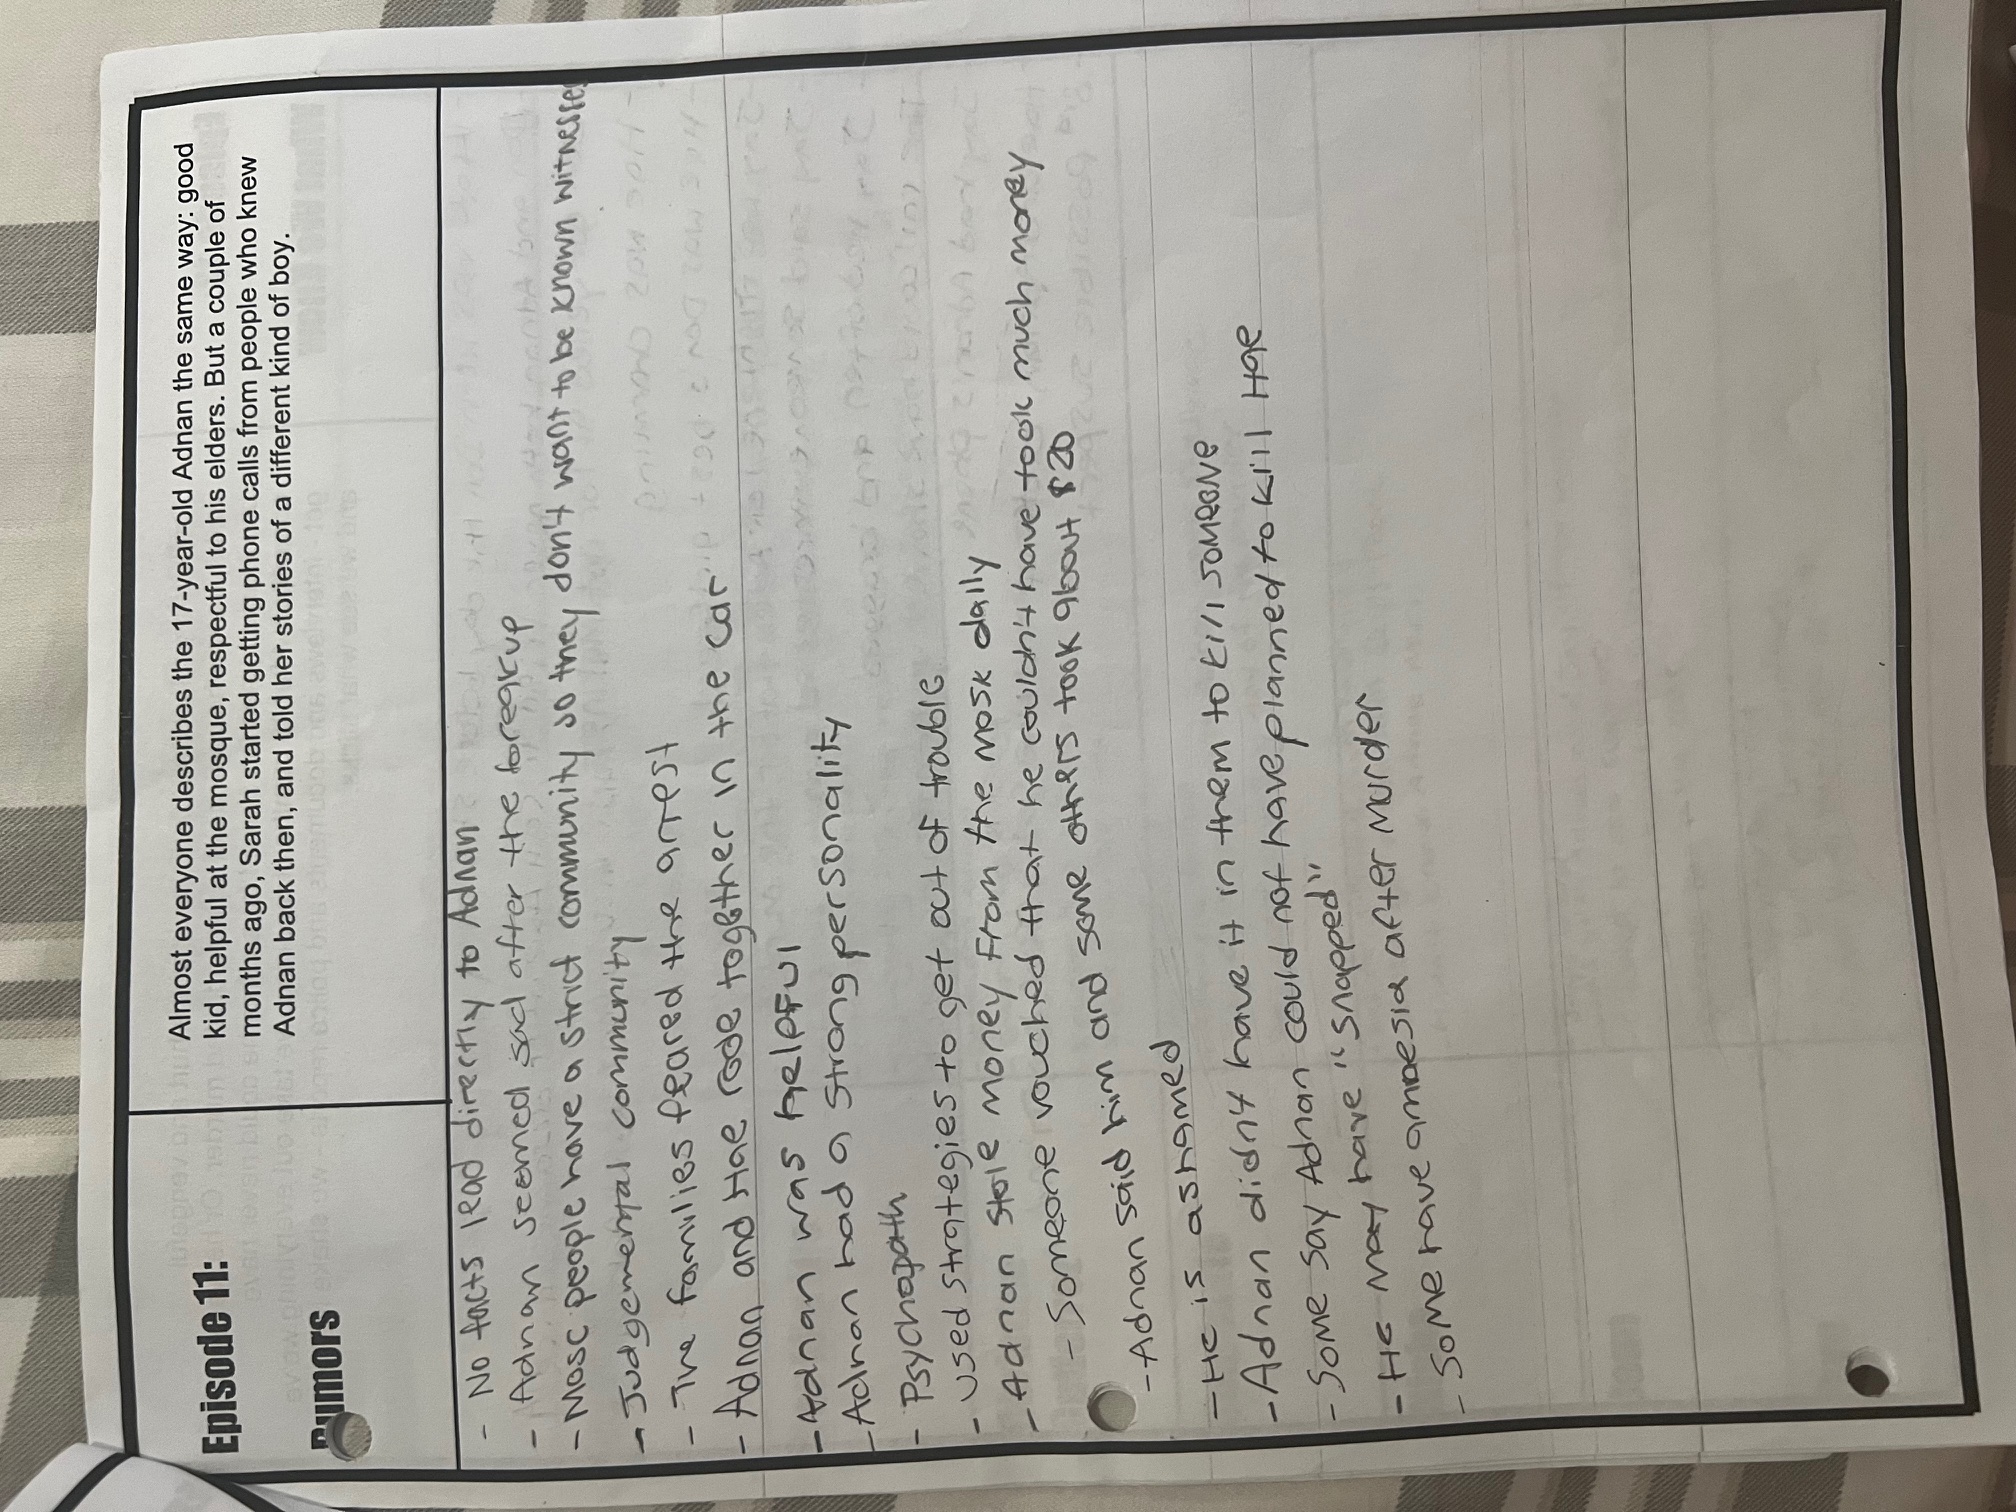 Episode 11:
Rumors
Almost everyone describes the 17-year-old Adnan the same way: good
kid, helpful at the mosque, respectful to his elders. But a couple of
months ago, Sarah started getting phone calls from people who knew
Adnan back then, and told her stories of a different kind of boy.
- No facts lead directly to Adnan
- Adnan seemed sad after the breakup
- Mosc people have a strict community so they don't want to be known witnesses
- Judgemental community
- The families feared the arrest
- Adnan and Hae rode together in the car
- Adnan was helpful
- Adnan had a strong personality
- Psychopath
- used strategies to get out of trouble
- Adnan stole money from the mosk daily
- Someone vouched that he couldn't have took much money
- Adnan said him and some others took about $20
- He is ashamed
- Adnan didn't have it in them to kill someone
- Some say Adnan could not have planned to kill Hae
- He may have "snapped"
- Some have amnesia after murder